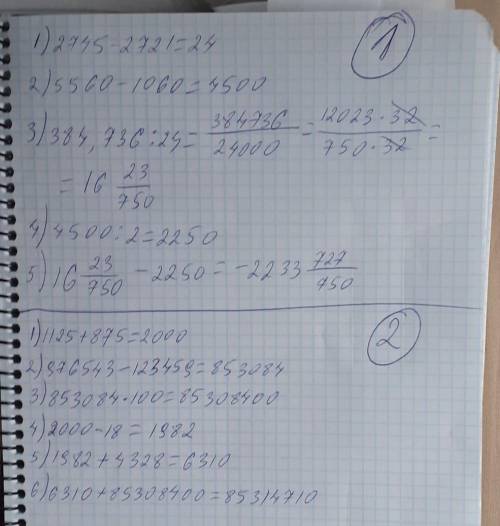 1
1) 2745-2721=24
2) 5560-1060=4500
3) 384,736:24= 384736/24000 = 12023·32/750·32 =
= 16 23/750
4) 4500:2=2250
5) 16 23/750 - 2250 = -2233 727/750
2
1) 1125+875=2000
2) 976543-123459=853084
3) 853084·100=85308400
4) 2000-18=1982
5) 1982+4328=6310
6) 6310+85308400=85314710